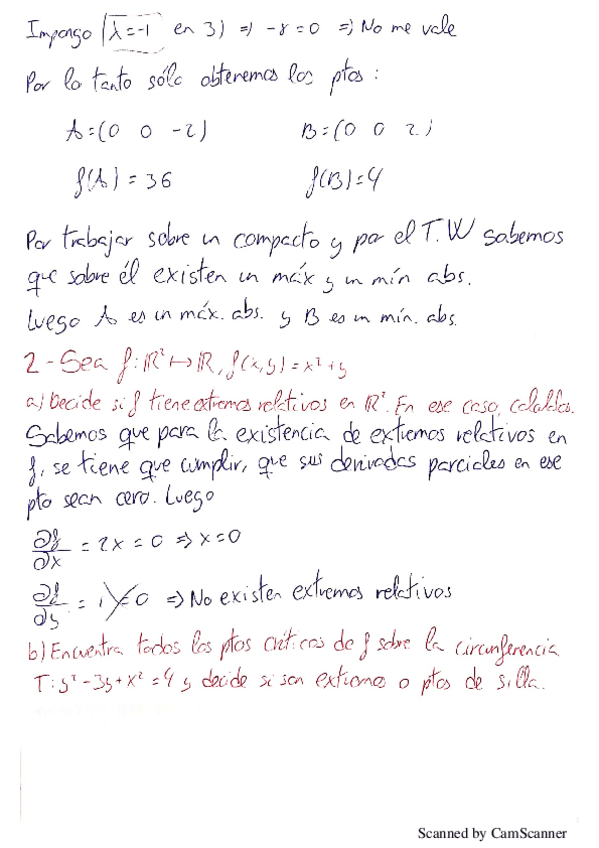 Impongo λ=-1 en 3) => -8=0 => No me vale
Por lo tanto sólo obtenemos los ptos:
A=(0 0 -2) B=(0 0 2)
f(A)=36 f(B)=4
Por trabajar sobre un compacto y por el T.W sabemos
que sobre él existen un máx y un mín abs.
Luego A es un máx. abs. y B es un mín. abs.
2- Sea f: ℝ² ↦ ℝ, f(x,y)=x²+y
a) Decide si f tiene extremos relativos en ℝ². En ese caso, calcúlalos.
Sabemos que para la existencia de extremos relativos en
f, se tiene que cumplir, que sus derivadas parciales en ese
pto sean cero. Luego
∂f/∂x = 2x = 0 => x=0
∂f/∂y = 1 ≠ 0 => No existen extremos relativos
b) Encuentra todos los ptos críticos de f sobre la circunferencia
T: y²-3y+x²=4 y decide si son extremos o ptos de silla.
Scanned by CamScanner